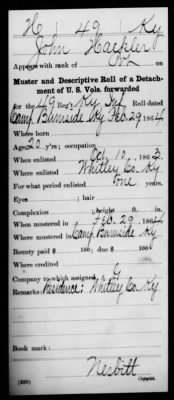 H 49 Ky
John Hackler
Appears with rank of
Muster and Descriptive Roll of a Detach-
ment of U. S. Vols. forwarded
for the 49 Reg't Ky Inf Roll dated
Camp Burnside Ky Feb 29, 1864
Where born
Age 20 y'rs; occupation
When enlisted Oct. 10, 1863.
Where enlisted Whitley Co. Ky
For what period enlisted one years.
Eyes ; hair
Complexion ; height ft. in.
When mustered in Feb. 29, 1864
Where mustered in Camp Burnside Ky
Bounty paid $ 100; due $ 100
Where credited
Company to which assigned G
Remarks: Residence: Whitley Co. Ky
Book mark:
Nesbitt
Copyist.